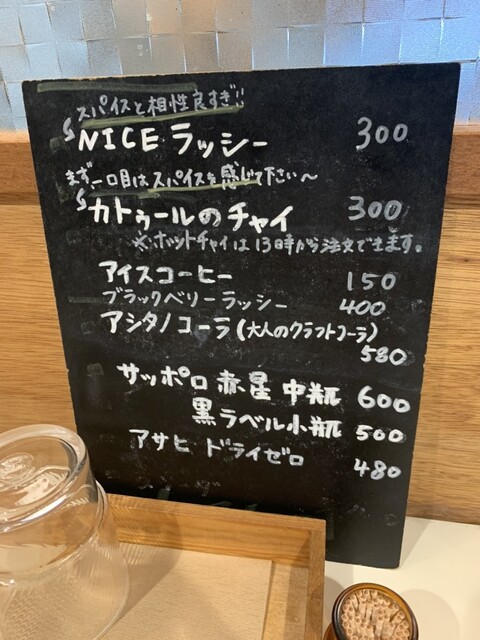 スパイスと相性良すぎ!!
NICE ラッシー 300
まず、一口目はスパイスを感じて下さい〜
カトゥールのチャイ 300
※ホットチャイは13時から注文できます。
アイスコーヒー 150
ブラックベリーラッシー 400
アシタノコーラ(大人のクラフトコーラ)
580
サッポロ 赤星 中瓶 600
黒ラベル小瓶 500
アサヒ ドライゼロ 480